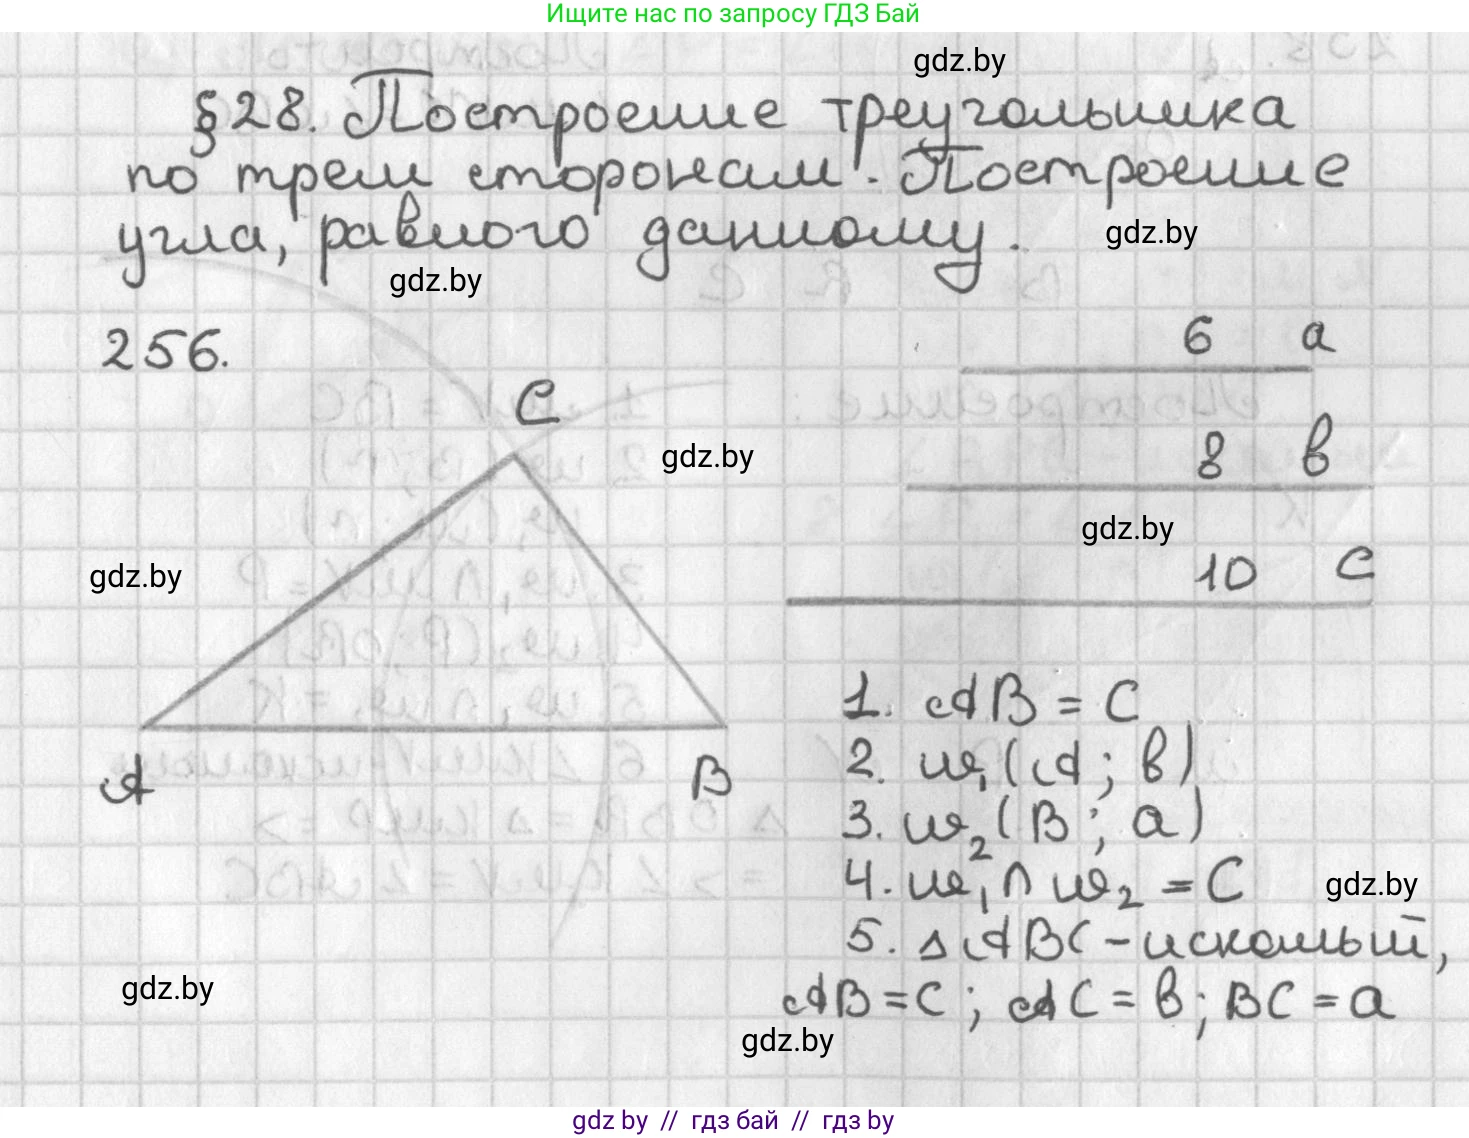 Ищите нас по запросу ГДЗ Бай
gdz.by
§28. Построение треугольника
по трем сторонам. Построение
угла, равного данному.
gdz.by
gdz.by
256.
6 a
C
8 b
gdz.by
gdz.by
10 c
gdz.by
A
B
1. AB = C
2. w₁(A; b)
3. w₂(B; a)
4. w₁ ∩ w₂ = C
gdz.by
5. △ABC - искомый,
AB = C; AC = b; BC = a
gdz.by
gdz.by
gdz.by // гдз бай // гдз by